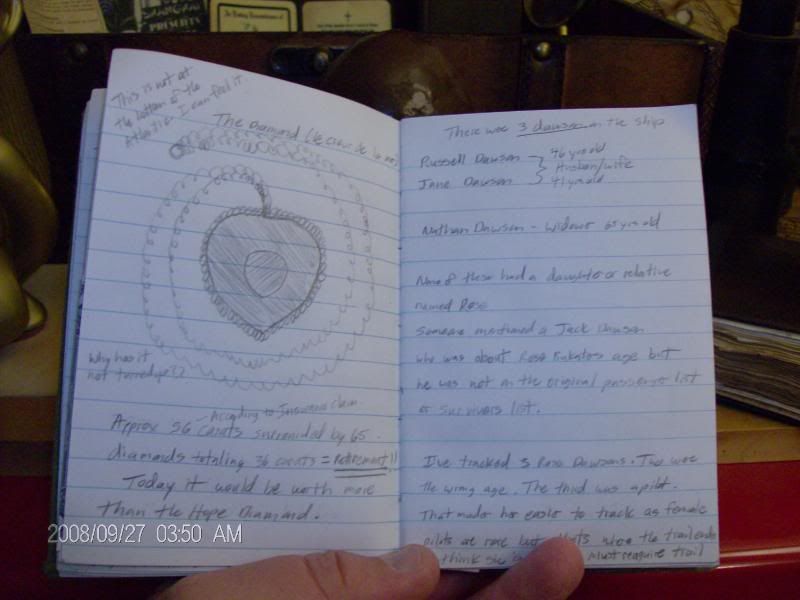 This is not at
the bottom of the
Atlantic I can feel it.
The Diamond
Why has it
not turned up??
According to Insurance claim
Approx 56 carats surrounded by 65
diamonds totaling 36 carats = Retirement!!
Today it would be worth more
than the Hope Diamond.
There were 3 dawson on the ship
Russell Dawson 46 yrs old
Husban/wife
Jane Dawson 41 yrs old
Nathan Dawson - widower 65 yrs old
None of these had a daughter or relative
named Rose
Someone mentioned a Jack Dawson
who was about Rose Bukaters age but
he was not on the original passenger list
or survivors list.
I've tracked 3 Rose Dawsons. Two were
the wrong age. The third was a pilot.
That makes her easier to track as female
pilots are rare but thats where the trail ends
think she must reaquire trail
PRESENTS
2008/09/27 03:50 AM